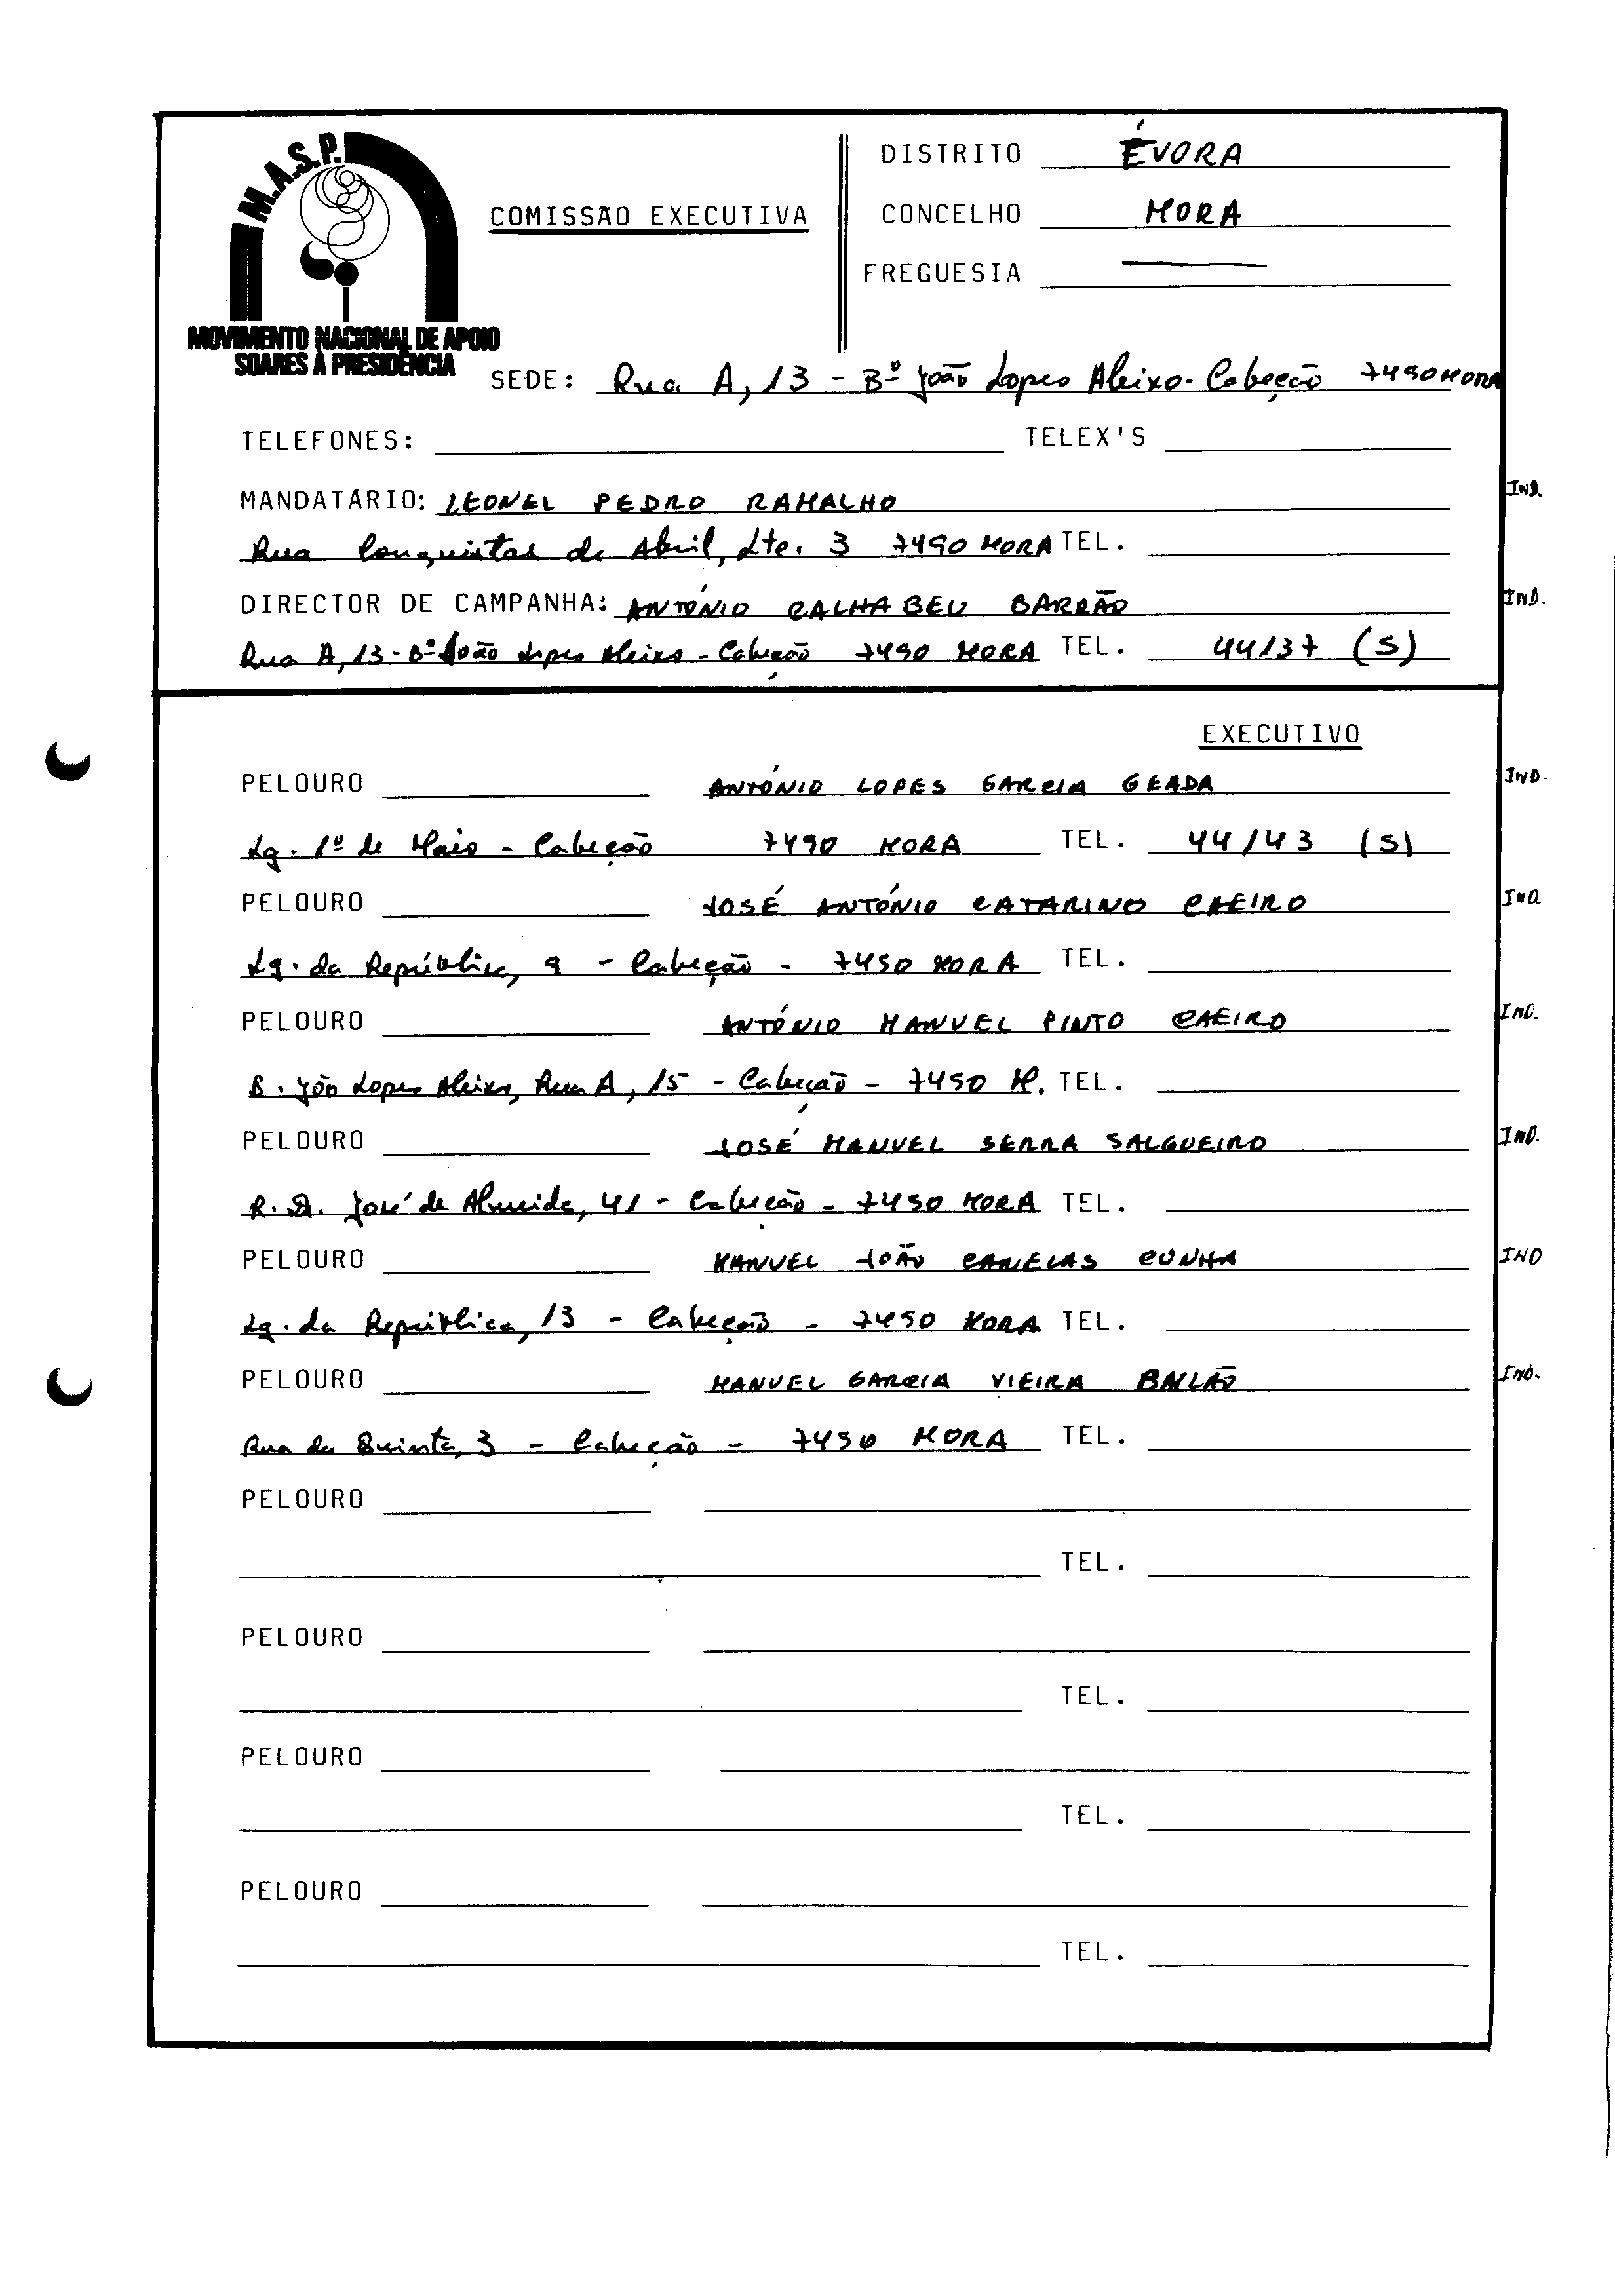 M.A.S.P.
MOVIMENTO NACIONAL DE APOIO
SOARES À PRESIDÊNCIA
COMISSÃO EXECUTIVA
DISTRITO ÉVORA
CONCELHO MORA
FREGUESIA
SEDE: Rua A, 13 - Bº João Lopes Aleixo - Cabeção 7490 MORA
TELEFONES: TELEX'S
MANDATÁRIO: LEONEL PEDRO RAMALHO IND.
Rua Conquistas de Abril, Lte. 3 7490 MORA TEL.
DIRECTOR DE CAMPANHA: ANTÓNIO CALHABEU BARRÃO IND.
Rua A, 13 - Bº João Lopes Aleixo - Cabeção 7490 MORA TEL. 44137 (S)
EXECUTIVO
PELOURO ANTÓNIO LOPES GARCIA GEADA IND
Lg. 1º de Maio - Cabeção 7490 MORA TEL. 44143 (S)
PELOURO JOSÉ ANTÓNIO CATARINO CAEIRO IND
Lg. da República, 9 - Cabeção - 7490 MORA TEL.
PELOURO ANTÓNIO MANUEL PINTO CAEIRO IND.
B. João Lopes Aleixo, Rua A, 15 - Cabeção - 7490 M. TEL.
PELOURO JOSÉ MANUEL SERRA SALGUEIRO IND.
R. D. José de Almeida, 41 - Cabeção - 7490 MORA TEL.
PELOURO MANUEL JOÃO CANELAS CUNHA IND
Lg. da República, 13 - Cabeção - 7490 MORA TEL.
PELOURO MANUEL GARCIA VIEIRA BAILÃO IND.
Rua da Quinta, 3 - Cabeção - 7490 MORA TEL.
PELOURO
TEL.
PELOURO
TEL.
PELOURO
TEL.
PELOURO
TEL.